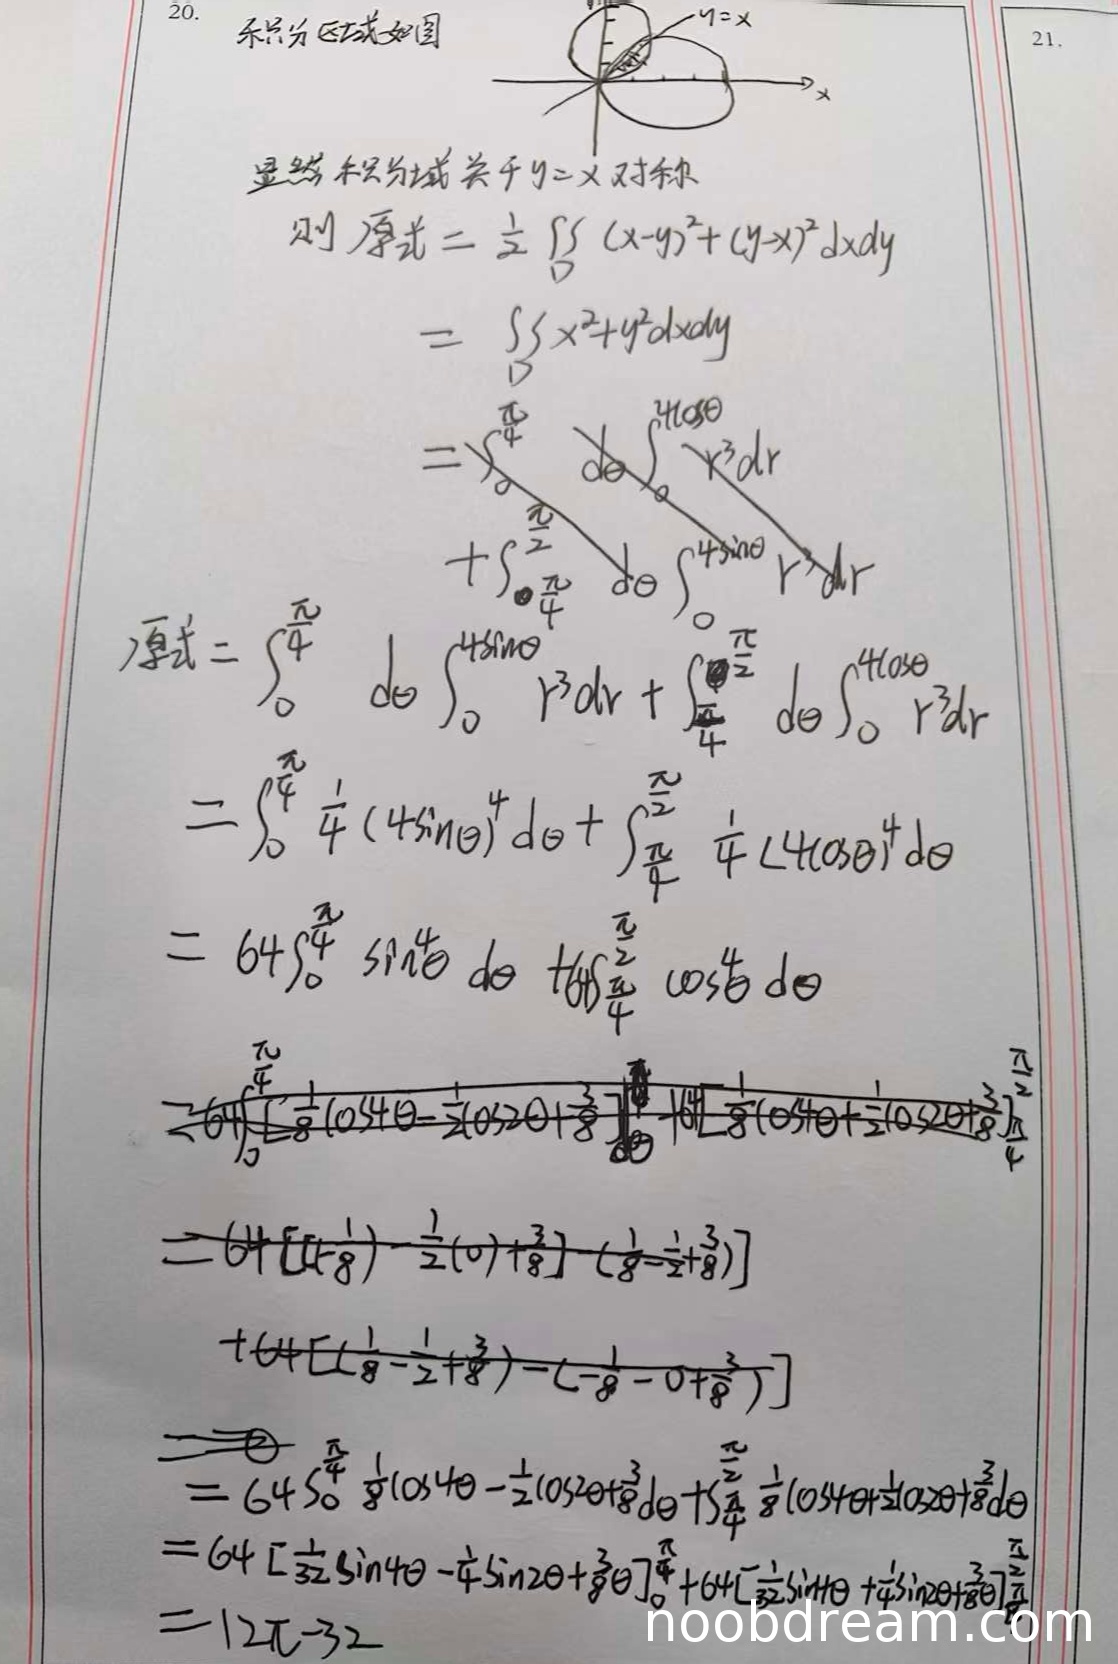 20.
积分区域如图
y=x
x
21.
显然积分域关于y=x对称
则原式 = 1/2 ∬_D (x-y)²+(y-x)² dxdy
= ∬_D x²+y² dxdy
= ∫_0^{π/4} dθ ∫_0^{4cosθ} r³dr
+ ∫_{π/4}^{π/2} dθ ∫_0^{4sinθ} r³dr
原式 = ∫_0^{π/4} dθ ∫_0^{4sinθ} r³dr + ∫_{π/4}^{π/2} dθ ∫_0^{4cosθ} r³dr
= ∫_0^{π/4} 1/4 (4sinθ)⁴dθ + ∫_{π/4}^{π/2} 1/4 (4cosθ)⁴dθ
= 64∫_0^{π/4} sin⁴θ dθ + 64∫_{π/4}^{π/2} cos⁴θ dθ
= 64∫_0^{π/4} [1/8 cos4θ - 1/2 cos2θ + 3/8] dθ + 64[1/8 cos4θ + 1/2 cos2θ + 3/8]_{π/4}^{π/2}
= 64 [(-1/8) - 1/2(0) + 3/8] - (1/8 - 1/2 + 3/8)]
+ 64[(1/8 - 1/2 + 3/8) - (-1/8 - 0 + 3/8)]
= 64∫_0^{π/4} 1/8 cos4θ - 1/2 cos2θ + 3/8 dθ + ∫_{π/4}^{π/2} 1/8 cos4θ + 1/2 cos2θ + 3/8 dθ
= 64 [1/32 sin4θ - 1/4 sin2θ + 3/8 θ]_0^{π/4} + 64[1/32 sin4θ + 1/4 sin2θ + 3/8 θ]_{π/4}^{π/2}
= 12π-32
noobdream.com